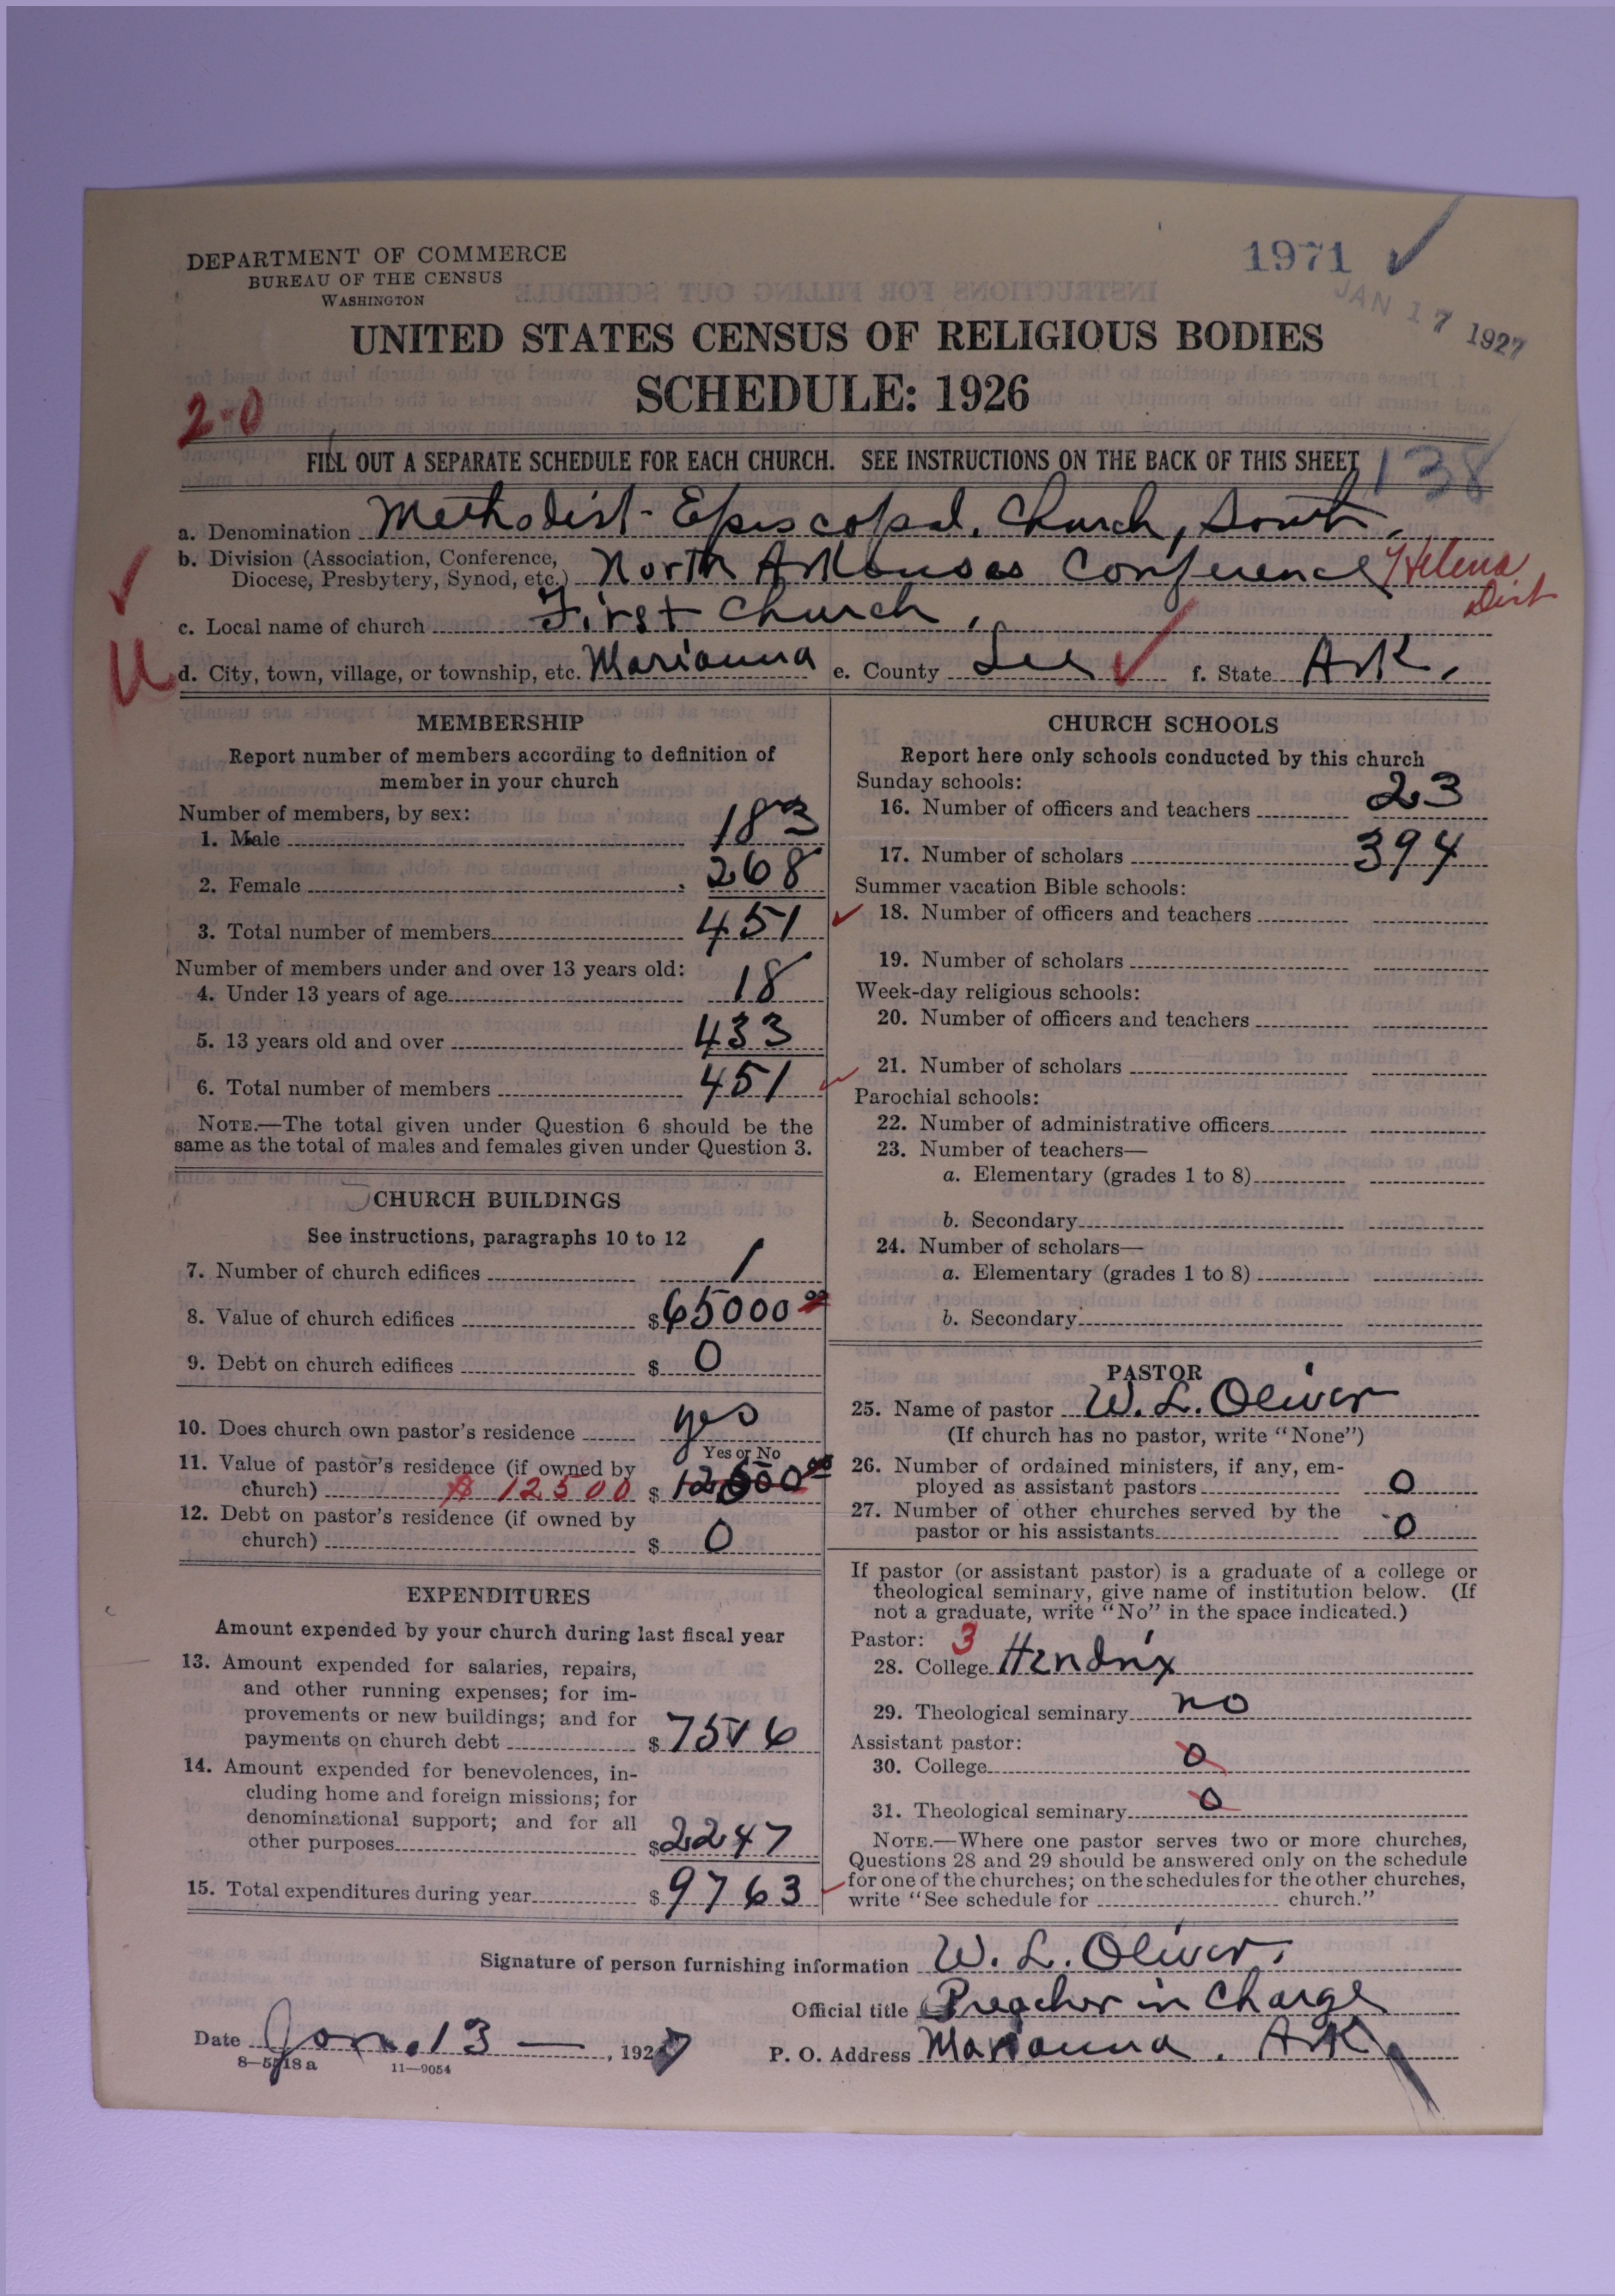 DEPARTMENT OF COMMERCE
BUREAU OF THE CENSUS
WASHINGTON
1971
JAN 17 1927
UNITED STATES CENSUS OF RELIGIOUS BODIES
SCHEDULE: 1926
2-0
FILL OUT A SEPARATE SCHEDULE FOR EACH CHURCH. SEE INSTRUCTIONS ON THE BACK OF THIS SHEET
138
a. Denomination Methodist Episcopal, Church, South.
b. Division (Association, Conference,
Diocese, Presbytery, Synod, etc.) North Arkansas Conference Helena
Dist
c. Local name of church First Church,
d. City, town, village, or township, etc. Marianna e. County Lee f. State Ark.
MEMBERSHIP
Report number of members according to definition of
member in your church
Number of members, by sex:
1. Male 183
2. Female 268
3. Total number of members 451
Number of members under and over 13 years old:
4. Under 13 years of age 18
5. 13 years old and over 433
6. Total number of members 451
NOTE.—The total given under Question 6 should be the
same as the total of males and females given under Question 3.
CHURCH BUILDINGS
See instructions, paragraphs 10 to 12
7. Number of church edifices 1
8. Value of church edifices $65000 00
9. Debt on church edifices $ 0
10. Does church own pastor's residence yes
Yes or No
11. Value of pastor's residence (if owned by
church) $ 12500 $ 12500 00
12. Debt on pastor's residence (if owned by
church) $ 0
EXPENDITURES
Amount expended by your church during last fiscal year
13. Amount expended for salaries, repairs,
and other running expenses; for im-
provements or new buildings; and for
payments on church debt $7516
14. Amount expended for benevolences, in-
cluding home and foreign missions; for
denominational support; and for all
other purposes $2247
15. Total expenditures during year $9763
CHURCH SCHOOLS
Report here only schools conducted by this church
Sunday schools:
16. Number of officers and teachers 23
17. Number of scholars 394
Summer vacation Bible schools:
18. Number of officers and teachers
19. Number of scholars
Week-day religious schools:
20. Number of officers and teachers
21. Number of scholars
Parochial schools:
22. Number of administrative officers
23. Number of teachers—
a. Elementary (grades 1 to 8)
b. Secondary
24. Number of scholars—
a. Elementary (grades 1 to 8)
b. Secondary
PASTOR
25. Name of pastor W. L. Oliver
(If church has no pastor, write "None")
26. Number of ordained ministers, if any, em-
ployed as assistant pastors 0
27. Number of other churches served by the
pastor or his assistants 0
If pastor (or assistant pastor) is a graduate of a college or
theological seminary, give name of institution below. (If
not a graduate, write "No" in the space indicated.)
Pastor: 3
28. College Hendrix
29. Theological seminary no
Assistant pastor:
30. College 0
31. Theological seminary 0
NOTE.—Where one pastor serves two or more churches,
Questions 28 and 29 should be answered only on the schedule
for one of the churches; on the schedules for the other churches,
write "See schedule for church."
Signature of person furnishing information W. L. Oliver.
Official title Preacher in Charge
Date Jan. 13 — , 1927
P. O. Address Marianna. Ark,
8—5718a 11—9054